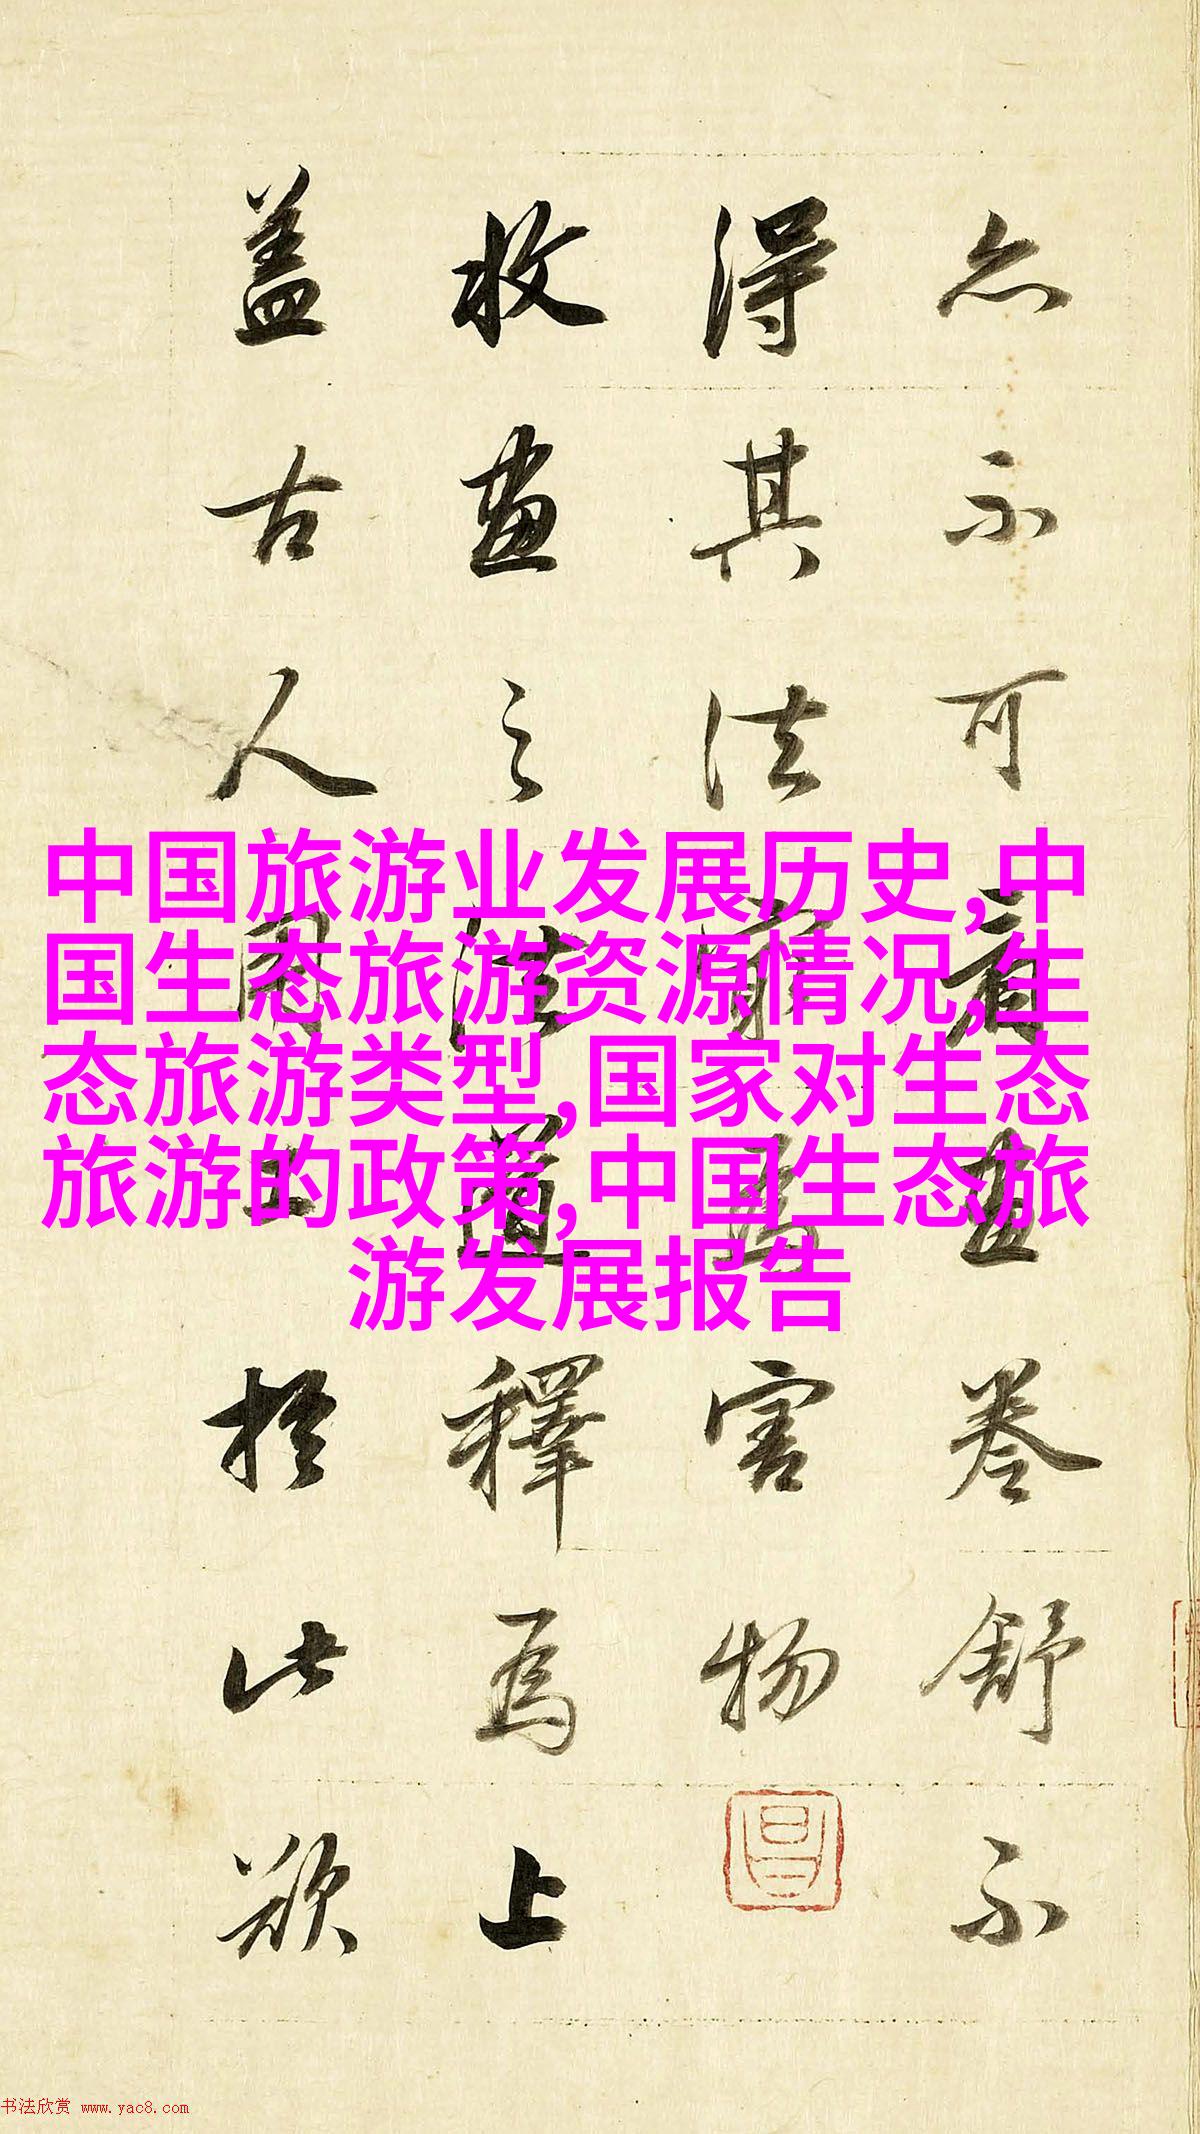 中国旅游业发展历史,中
国生态旅游资源情况,生
态旅游类型,国家对生态
旅游的政策,中国生态旅
游发展报告
亦不可看畫卷舒不
得其法最為害物
收畫之法道釋為上
蓋古人用工於此欲
书法欣赏 www.yac8.com